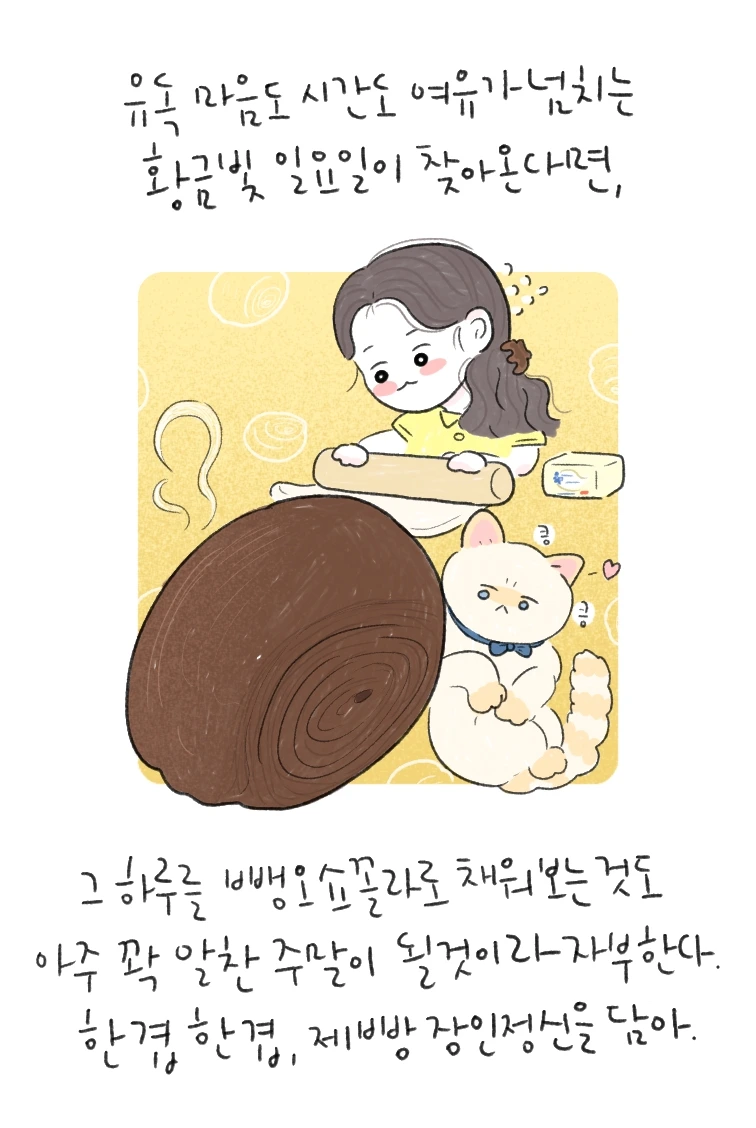 유독 마음도 시간도 여유가 넘치는
황금빛 일요일이 찾아온다면,
킁
킁
그 하루를 뺑오쇼꼴라로 채워보는것도
아주 꽉 알찬 주말이 될것이라 자부한다.
한겹 한겹, 제빵 장인정신을 담아.